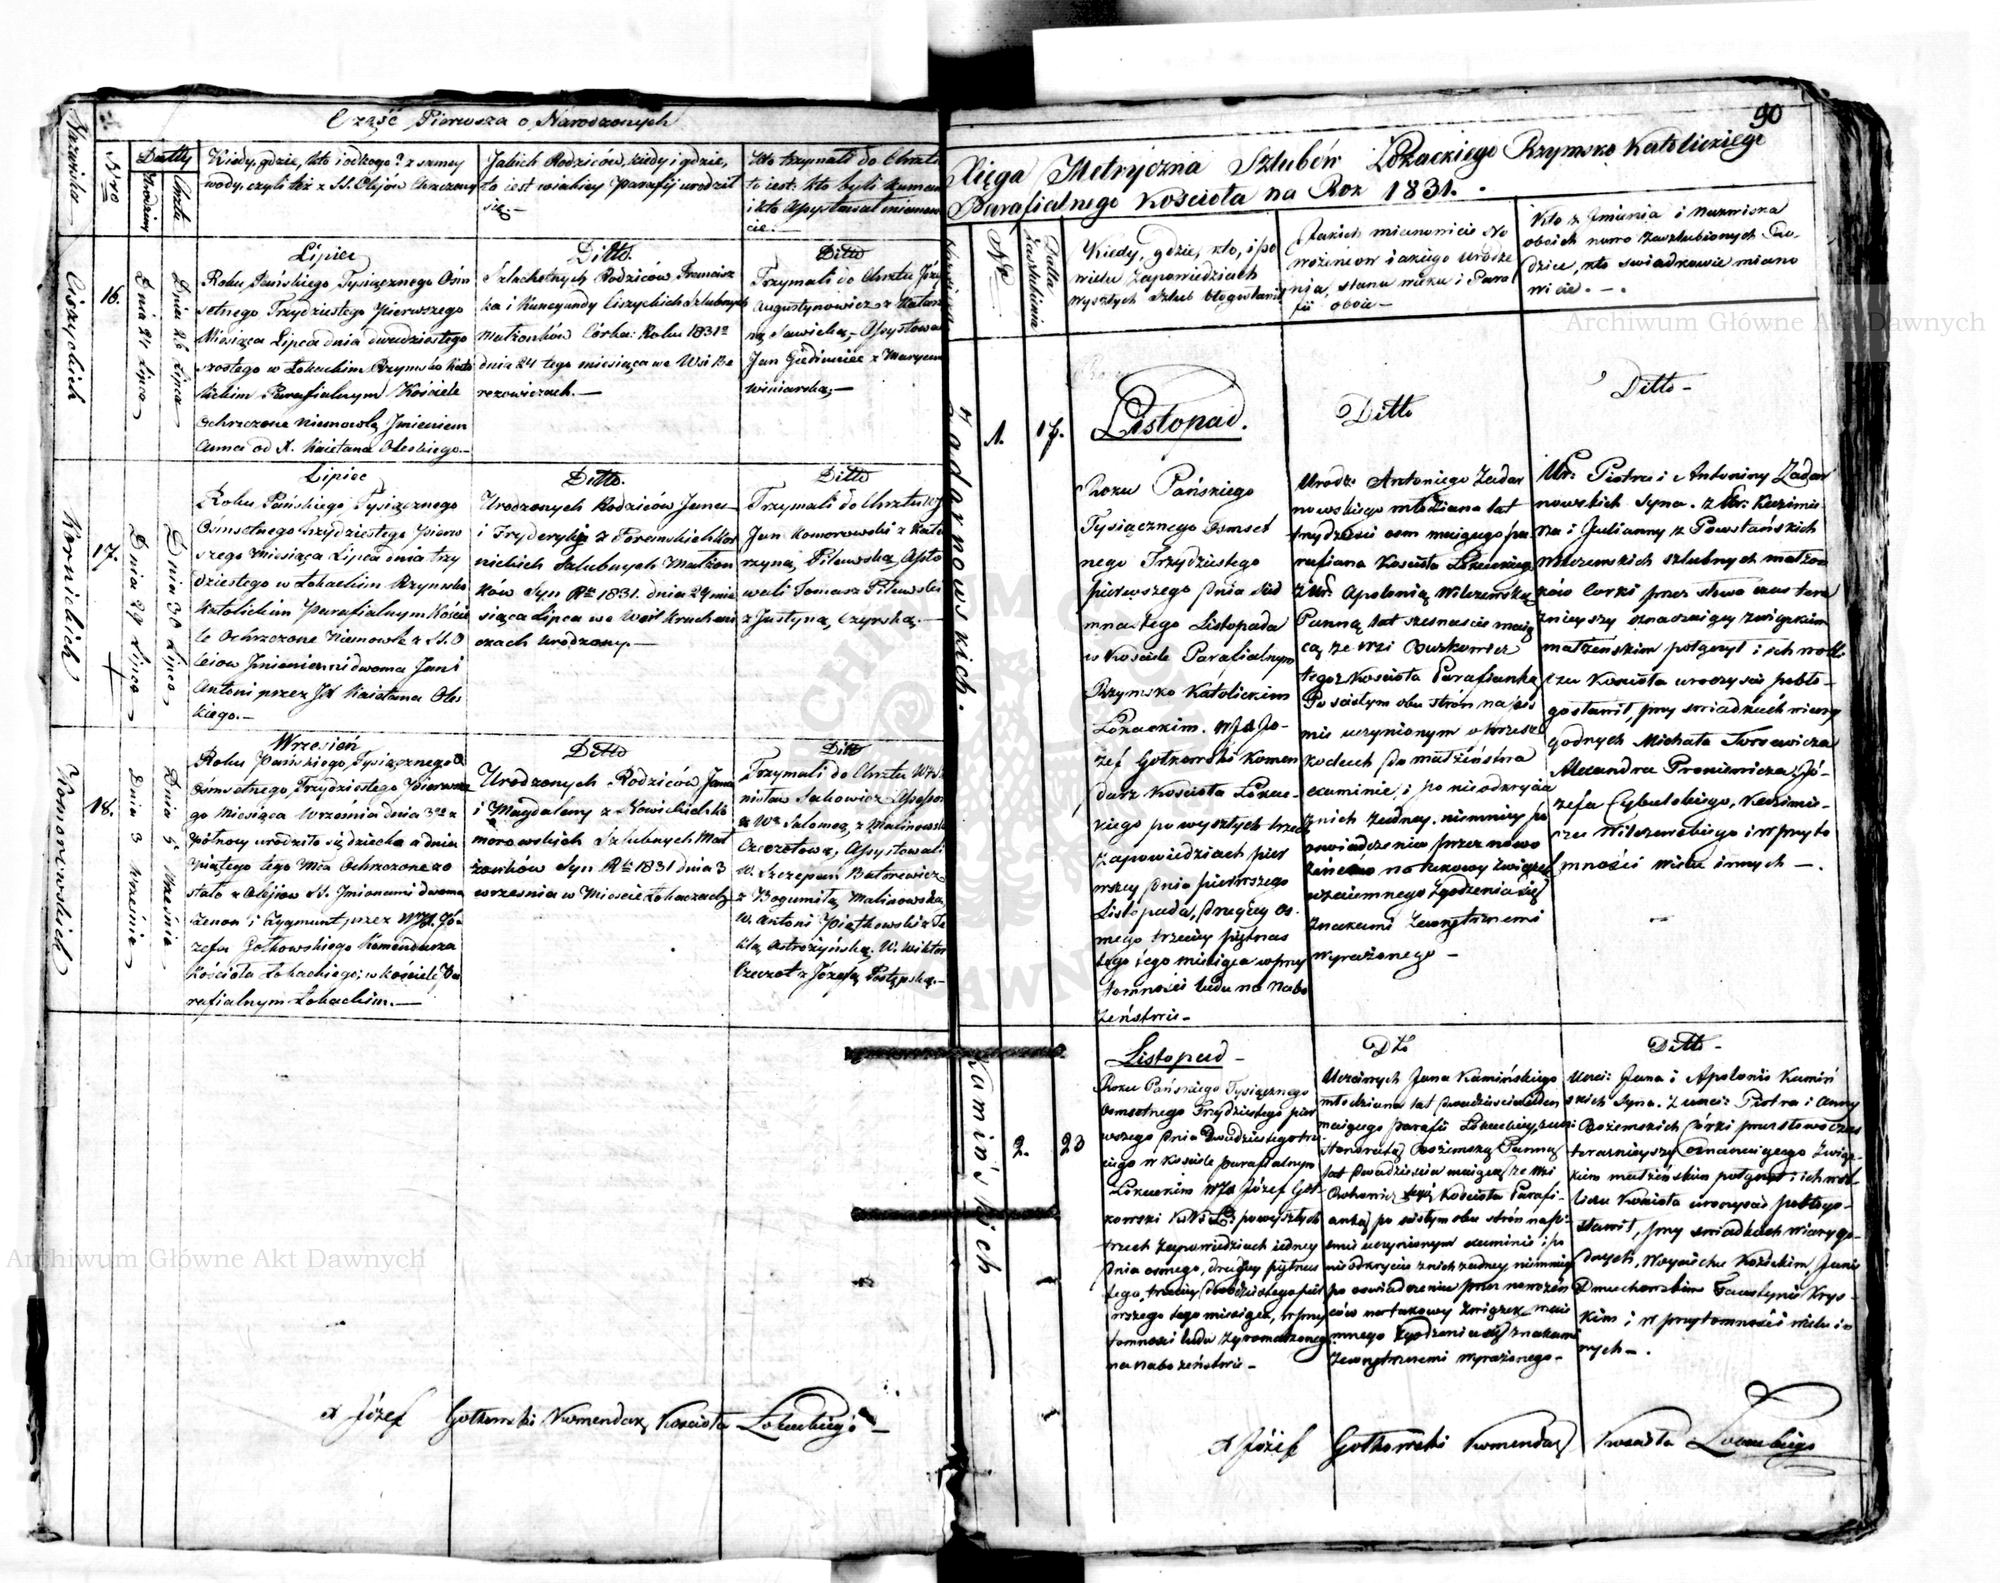 Część Pierwsza o Narodzonych
Nazwiska
Nro
Datty
Urodziny
Chrztu
Kiedy, gdzie, kto i od kogo? z samey
wody, czyli też z SS. Olejów Chrzczony
Jakich Rodziców, kiedy i gdzie,
to iest w iakiey Parafij urodził
się.—
Kto trzymał do Chrztu
to iest: kto byli Kumow
i kto Assystował niemow
cie.—
Ciszyckich
16.
Dnia 24 Lipca
Dnia 26 Lipca
Lipiec
Roku Pańskiego Tysiącznego Ośm
setnego Trzydziestego Pierwszego
Miesiąca Lipca dnia dwudziestego
szostego w Łokackim Rzymsko Kato
lickim Parafialnym Kościele
Ochrzczone Niemowlę Jmieniem
Anna od X. Kaietana Oleskiego.—
Ditto.
Szlachetnych Rodziców Francisz
ka i Kunegundy Ciszyckich Szlubnych
Małżonków Córka: Roku 1831o
dnia 24 tego miesiąca we Wsi Be
rezowiczach.—
Ditto
Trzymali do Chrztu Józef
Augustynowicz z Katarzy
ną Sawicką,— Assystowa
Jan Giedwiłł z Maryan
Winiarską;—
Kornickich
17.
Dnia 29 Lipca
Dnia 30 Lipca
Lipiec
Roku Pańskiego, Tysiącznego
Osmsetnego Trzydziestego Pierw
szego Miesiąca Lipca dnia trzy
dziestego w Łokackim Rzymsko
Katolickim Parafialnym Koście
le Ochrzczone Niemowle z SS. O
leiow Jmieniem dwoma Jan i
Antoni przez JX Kaietana Oles
kiego.—
Ditto.
Urodzonych Rodziców Jana
i Fryderyki z Foremskich Kor
nickich Szlubnych Małżon
ków Syn Rku 1831. dnia 29 mie
siąca Lipca we Wsi Krucheni
czach urodzony.—
Ditto
Trzymali do Chrztu W.
Jan Komorowski z Kata
rzyną Pilewską, Assto
wali Tomasz Pilewski
z Justyną Czyrską.—
Komorowskich
18.
Dnia 3 Wrzesnia
Dnia 5 Wrzesnia
Wrzesień
Roku Pańskiego, Tysiącznego
Osmsetnego, Trzydziestego Pierwsze
go Miesiąca Września dnia 3go z
północy urodziło się dziecko a dnia
Piątego tego Mca Ochrzczone zo
stało z Olejow SS. Jmionami dwoma
Zenon i Zygmunt, przez WJX. Jó
zefa Gołkowskiego Komendarza
Kościoła Łokackiego; w kościele Pa
rafialnym Łokackim.—
Ditto
Urodzonych Rodziców Jana
i Magdaleny z Nowickich Ko
morowskich Szlubnych Mał
żonków Syn Rku 1831 dnia 3
wrzesnia w Miescie Łokaczach
Ditto
Trzymali do Chrztu W. Sta
nisław Sakowicz
z W. Salomeą z Malinowsk
Czeczotową, Assystowali
W. Szczepan Butkiewicz
z Bogumiłą Malinowską,
W. Antoni Piątkowski z Te
klą Ostrożyńską. W. Wiktor
Czeczot z Józefą Postępską.—
X Józef Gołkowski Komendarz Kościoła Łokackiego —
90
Xięga Metryczna Szlubów Łokackiego Rzymsko Katolickiego
Parafialnego Kościoła na Rok 1831.
Nazwiska
Nr
Datta
Zaszlubienia
Kiedy, gdzie, kto, i po
wielu Zapowiedziach
wyszłych Szlub błogosławił
Jakich mianowicie No
wożencow i iakiego urodze
nia, stanu wieku i Para
fii oboie —
Kto z Jmienia i Nazwiska
oboich nowo Zaszlubionych Ro-
dzice, kto swiadkowie miano
wicie. — . —
Żadarnowskich.
1.
17.
Listopad.
Roku Pańskiego
Tysiącznego Osmset
nego Trzydziestego
pierwszego Dnia Sied
mnastego Listopada
w Kościele Parafialnym
Rzymsko Katolickim
Łokackim. WJX Jó-
zef Gołkowski Komen
darz Kościoła Łokac-
kiego po wyszłych trzech
Zapowiedziach pier
wszey Dnia pierwszego
Listopada, Drugiey os-
mego trzeciey piętnas
tego tego miesiąca w przy
tomności ludu na Nabo
żeństwie —
Ditto
Urodz: Antoniego Żadar
nowskiego młodziana lat
trzydzieści osm maiącego pa
rafiana Kościoła Łokackiego
z Ur. Apolonią Wilczewską
Panną lat szesnascie maią
cą ze Wsi Buzkowicz
tegoż Kościoła Parafianką
Po scisłym obu stron na piś
mie uczynionym o przesz
kodach Do małżeństwa
examinie i po nieodkryciu
znich żadney, niemniey po
oswiadczeniu przez nowo
żeńców na takowy związek
wzaiemnego zgodzenia się
znakami zewnętrznemi
wyrażonego —
Ditto —
Ur: Piotra i Antoniny Żadar
nowskich Syna. z Ur: Kazimie
rza i Julianny z Powstańskich
Wilczewskich szlubnych małżon
ków Corki przez słowa czas tera
znieyszy oznaczaiący związkiem
małżenskim połączył i ich w obli
czu Kościoła uroczyscie pobło-
gosławił, przy swiadkach wiary
godnych Michała Turowicza
Alexandra Proniewicza Jó-
zefa Cybulskiego, Kazimie-
rza Wilczewskiego i w przyto
mności wielu innych —.
Kamińskich
2.
23
Listopad —
Roku Pańskiego Tysiącznego
Osmsetnego Trzydziestego pier
wszego Dnia Dwudziestego trze
ciego w Kościele parafialnym
Łokackim WJX Józef Goł-
kowski po wyszłych
trzech Zapowiedziach iedney
Dnia osmego, drugiey piętnas
tego, trzeciey Dwudziestego pier
wszego tego miesiąca, w przy
tomności ludu zgromadzonego
na nabożeństwie —
Dto
Uczciwych Jana Kamińskiego
młodziana lat Dwadziescia ieden
maiącego parafii Łokackiey, z ucz:
Honoratą Bożemską Panną
lat Dwadziescia maiącą ze wsi
Kościoła Parafi-
anką po scisłym obu stron na pi-
smie uczynionym examinie i po
nieodkryciu znich żadney niemniey
po oswiadczeniu przez nowożeń
ców na takowy związek wzaie
mnego zgodzenia się znakami
zewnętrznemi wyrażonego —
Ditto —
Uczci: Jana i Apolonii Kamiń
skich Syna. z uczci: Piotra i Anny
Bożemskich Córki przez słowo czas
teraznieyszy oznaczaiącego Związ-
kiem małżeńskim połączył i ich w ob-
liczu Kościoła uroczyscie pobłogo-
sławił, przy swiadkach wiarygo-
dnych, Woyciechu Kozickim Janie
Dmuchowskim Faustynie Krys-
kim i w przytomności wielu in
nych —.
X Józef Gołkowski Komendarz Kościoła Łokackiego
Archiwum Główne Akt Dawnych
Archiwum Główne Akt Dawnych